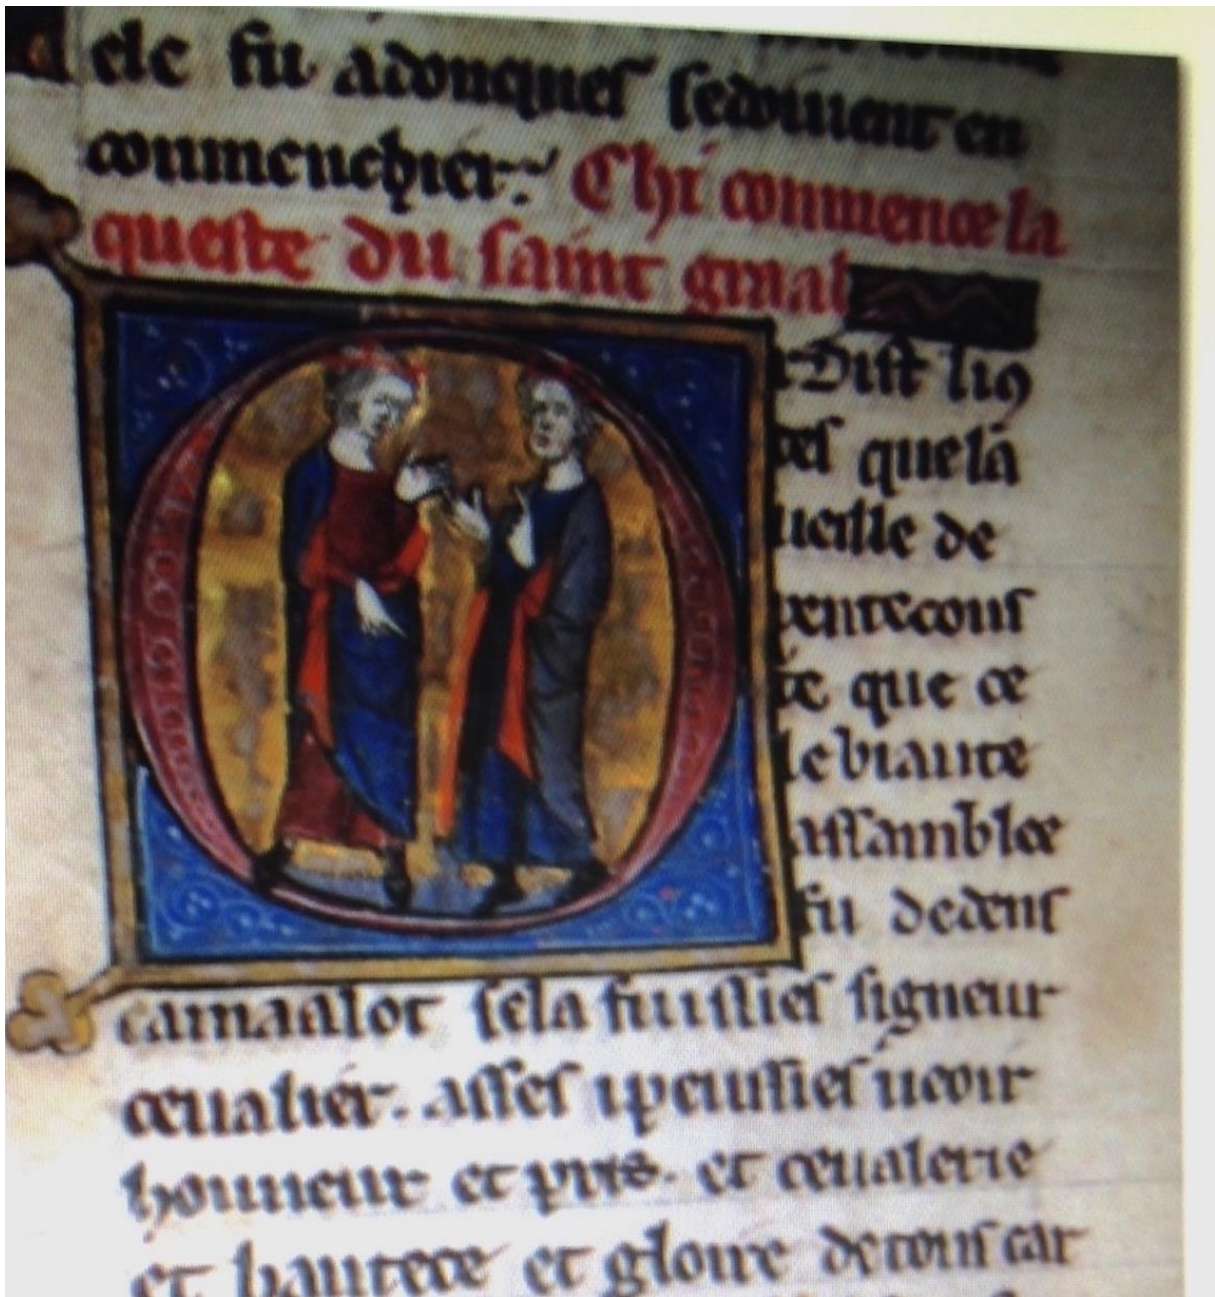 ele fu adonques sedoivent en
conmenchier. Chi conmence la
queste du saint graal
Dist li
ces que la
ueille de
pentecous
te que ce
le biaute
assamblee
fu dedens
camaalot se la fuissies signeur
ceualier. asses i peussies ueoir
honneur et pris. et ceualerie
et hautece et gloire de tous car